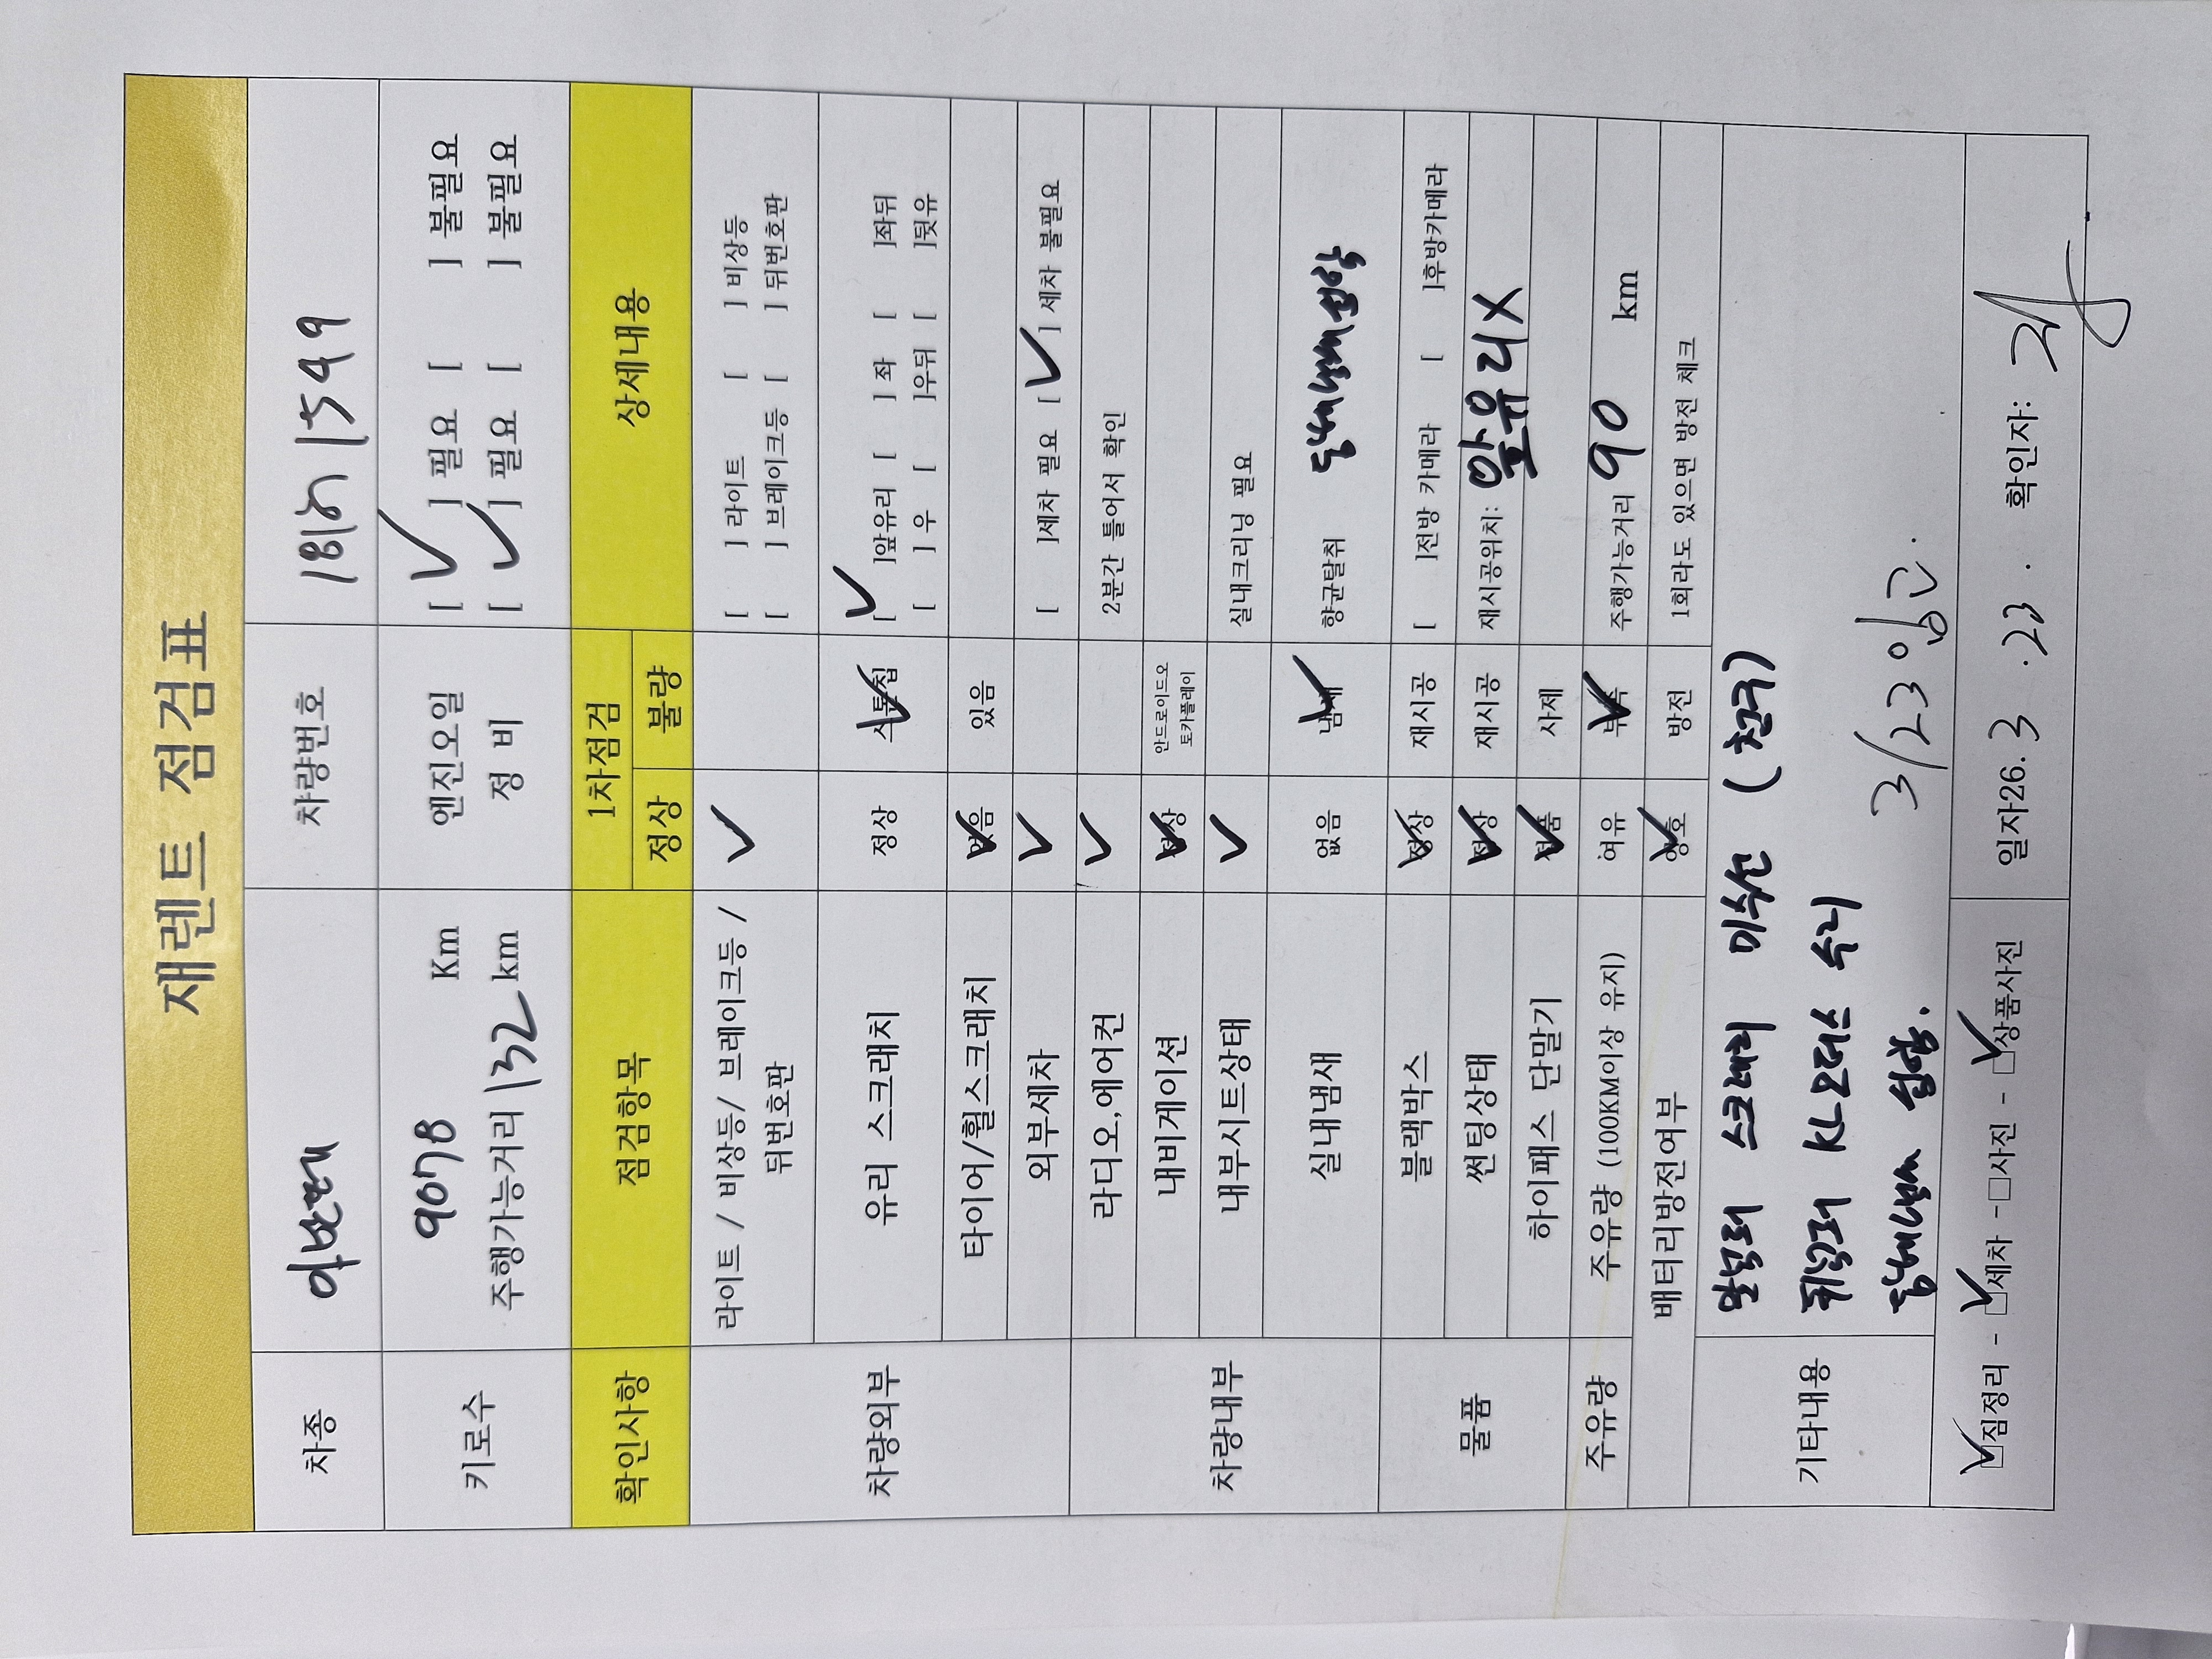 재렌트 점검표
차종 아반떼 차량번호 181허 1549
키로수 9078 Km 엔진오일 [ ✓ ] 필요 [ ] 불필요
주행가능거리 132 km 정 비 [ ✓ ] 필요 [ ] 불필요
확인사항 점검항목 1차점검 상세내용
정상 불량
차량외부 라이트 / 비상등/ 브레이크등 / 뒤번호판 ✓ [ ] 라이트 [ ] 비상등
[ ] 브레이크등 [ ] 뒤번호판
유리 스크래치 정상 스톤칩 ✓ [ ✓ ]앞유리 [ ] 좌 [ ]좌뒤
[ ] 우 [ ]우뒤 [ ]뒷유
타이어/휠스크래치 없음 ✓ 있음
외부세차 ✓ [ ]세차 필요 [ ✓ ] 세차 불필요
차량내부 라디오,에어컨 ✓ 2분간 틀어서 확인
내비게이션 정상 ✓ 안드로이드오토카플레이
내부시트상태 ✓ 실내크리닝 필요
실내냄새 없음 냄새 ✓ 향균탈취 담배냄새심각
물품 블랙박스 정상 ✓ 재시공 [ ]전방 카메라 [ ]후방카메라
썬팅상태 정상 ✓ 재시공 재시공위치: 앞유리X
하이패스 단말기 정품 ✓ 사제
주유량 주유량 (100KM이상 유지) 여유 부족 ✓ 주행가능거리 90 km
배터리방전여부 양호 ✓ 방전 1회라도 있으면 방전 체크
기타내용 앞범퍼 스크래치 미수선
뒤범퍼 KL모터스 수리
담배냄새 심함.
3/23 입고.
☑짐정리 - ☑세차 -□사진 - ☑상품사진 일자26. 3 . 23 . 확인자: